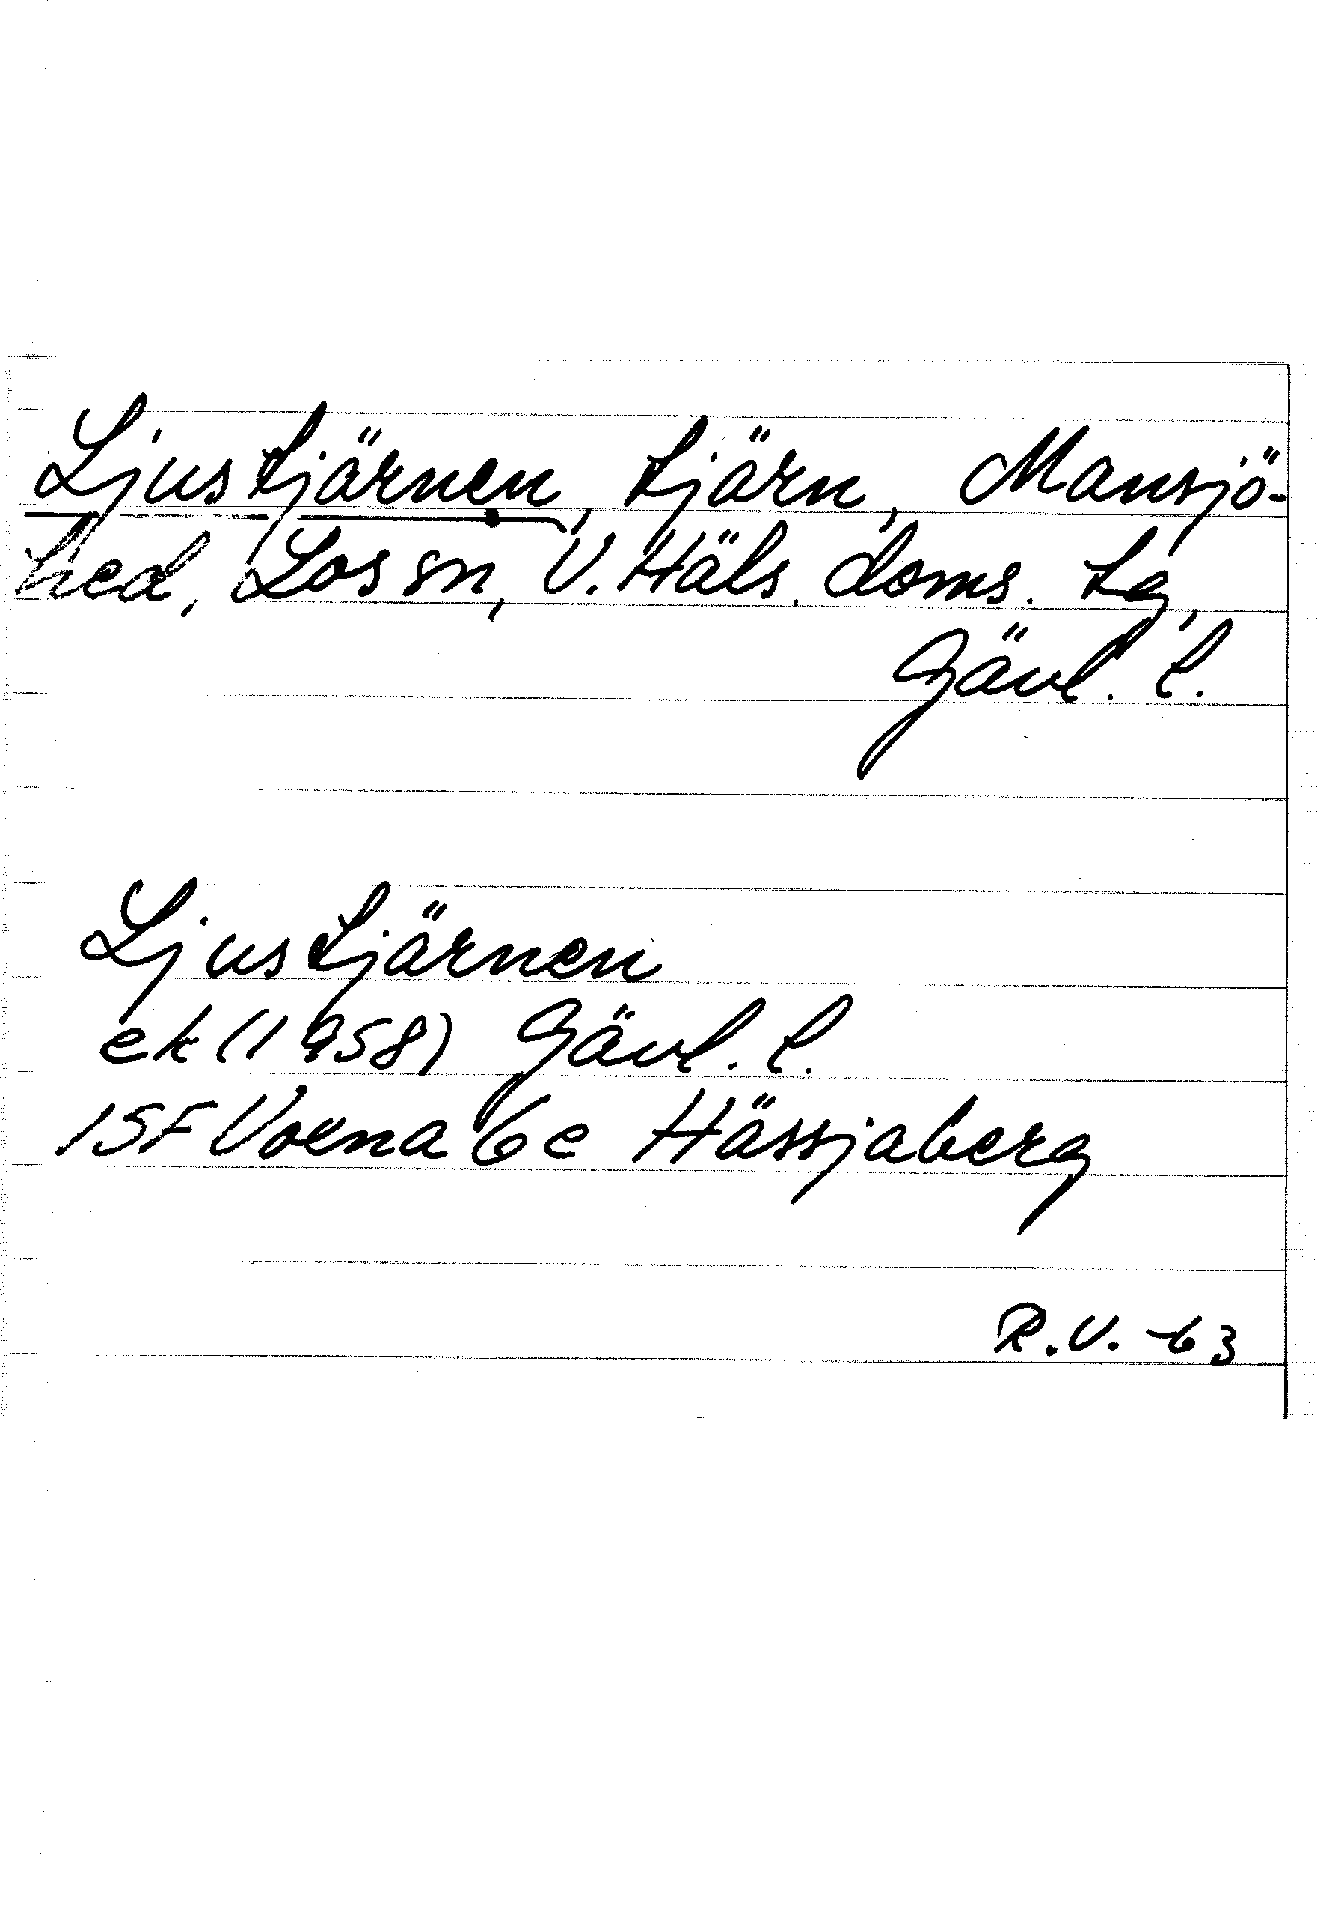 Ljustjärnen, tjärn, Mansjö-
hed, Los sn, V. Häls. doms. tg,
Gävl. l.
Ljustjärnen
ek (1958) Gävl. l.
15F Voxna 6e Hässjaberg
R.V. -63